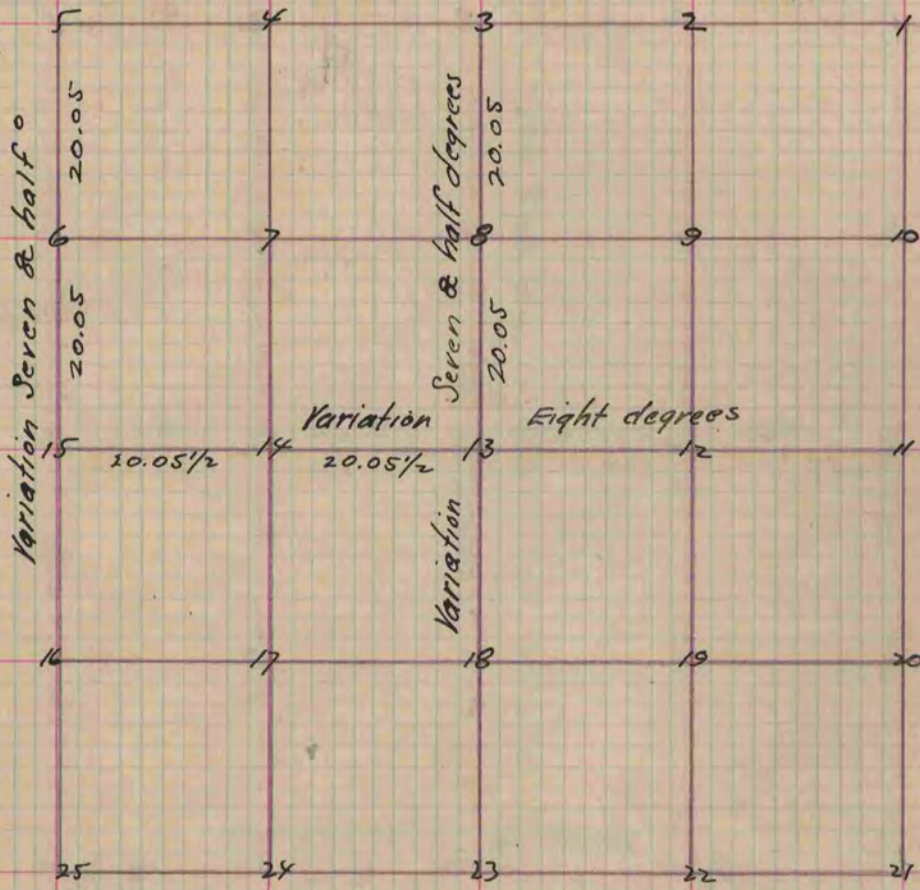 5 4 3 2 1
Variation Seven & half °
20.05
20.05
Variation Seven & half degrees
20.05
20.05
6 7 8 9 10
Variation Eight degrees
15 14 13 12 11
20.05½ 20.05½
16 17 18 19 20
25 24 23 22 21